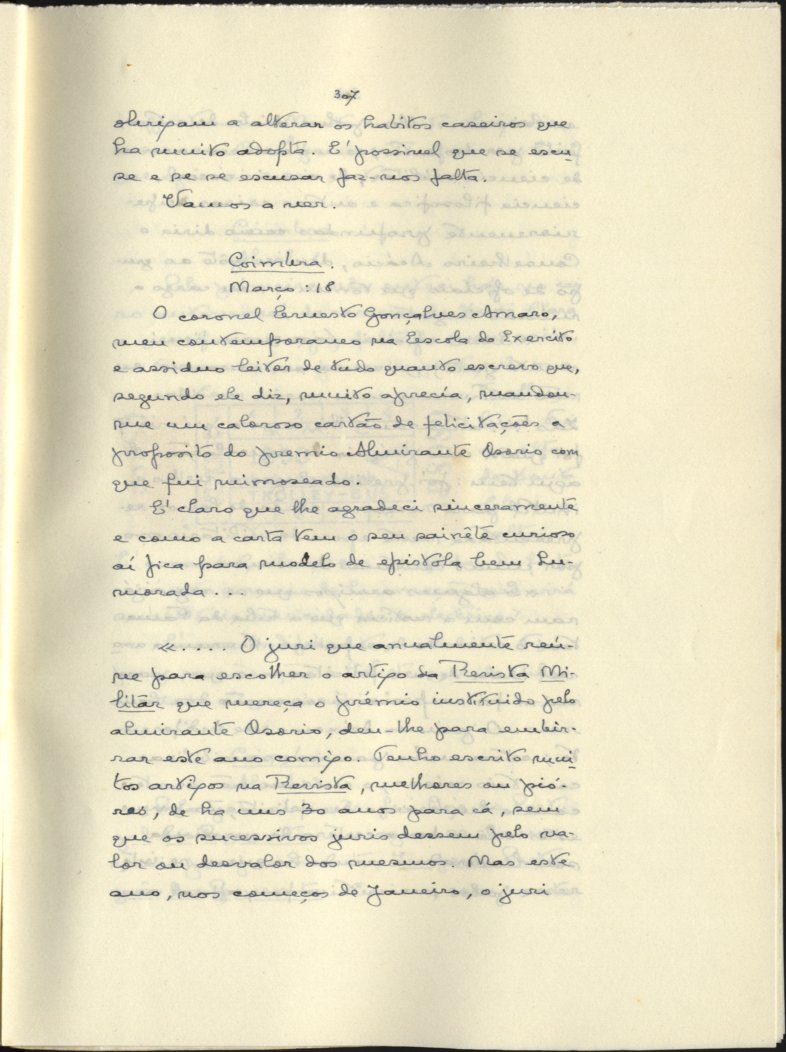 307
obrigam a alterar os habitos caseiros que
ha muito adopta. E' possivel que se escu-
se e se se escusar faz-nos falta.
Vamos a ver.
Coimbra.
Março : 18
O coronel Ernesto Gonçalves Amaro,
meu contemporaneo na Escola do Exercito
e assiduo leitor de tudo quanto escrevo que,
segundo ele diz, muito aprecía, mandou-
me um caloroso cartão de felicitações a
proposito do premio Almirante Osorio com
que fui mimoseado.
E' claro que lhe agradeci sinceramente
e como a carta tem o seu sainête curioso
aí fica para modelo de epistola bem hu-
morada ...
«..... O juri que anualmente reú-
ne para escolher o artigo da Revista Mi-
litar que mereça o prémio instituido pelo
almirante Osorio, deu-lhe para embir-
rar este ano comigo. Tenho escrito mui-
tos artigos na Revista, melhores ou pió-
res, de ha uns 30 anos para cá, sem
que os sucessivos juris dessem pelo va-
lor ou desvalor dos mesmos. Mas este
ano, nos começos de Janeiro, o juri